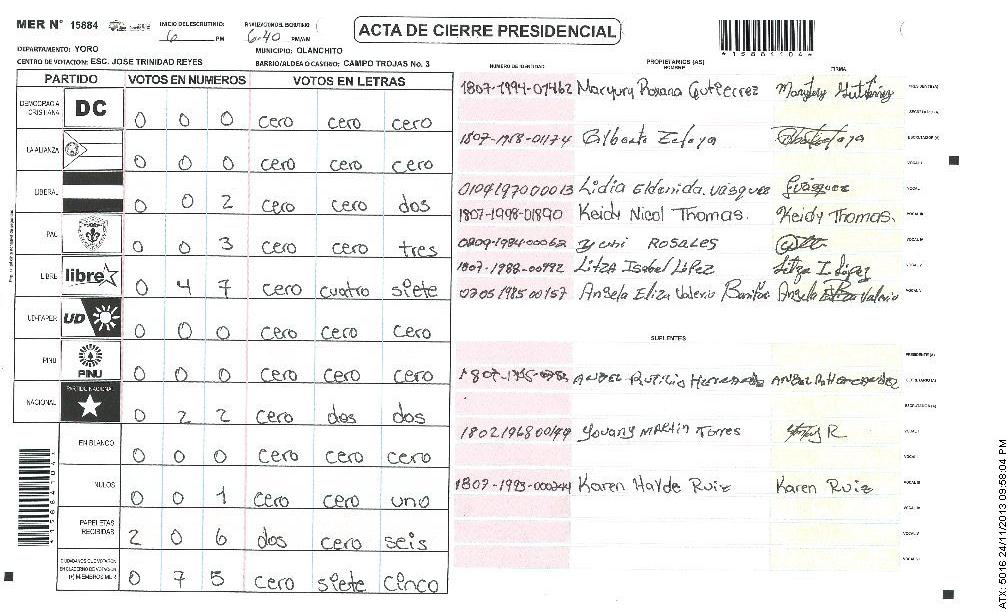 MER N° 15884 INICIO DEL ESCRUTINIO: 6 PM FINALIZACION DEL ESCRUTINIO: 6:40 PM/AM
ACTA DE CIERRE PRESIDENCIAL
*15884104*
DEPARTAMENTO: YORO MUNICIPIO: OLANCHITO
CENTRO DE VOTACION: ESC. JOSE TRINIDAD REYES BARRIO/ALDEA O CASTRO: CAMPO TROJAS No. 3
PARTIDO VOTOS EN NUMEROS VOTOS EN LETRAS
DEMOCRACIA CRISTIANA DC 0 0 0 cero cero cero
LA ALIANZA 0 0 0 cero cero cero
LIBERAL 0 0 2 cero cero dos
PAC 0 0 3 cero cero tres
LIBRE libre 0 4 7 cero cuatro siete
UD-FAPER UD 0 0 0 cero cero cero
PINU PINU 0 0 0 cero cero cero
NACIONAL PARTIDO NACIONAL 0 2 2 cero dos dos
EN BLANCO 0 0 0 cero cero cero
NULOS 0 0 1 cero cero uno
PAPELETAS RECIBIDAS 2 0 6 dos cero seis
CIUDADANOS QUE VOTARON EN CUADERNO DE VOTACION (+) MIEMBROS MER 0 7 5 cero siete cinco
NUMERO DE IDENTIDAD PROPIETARIOS (AS) NOMBRE FIRMA
1807-1994-01462 Maryury Roxana Gutierrez PRESIDENTE(A)
SECRETARIO(A)
1807-1958-01174 Gilberto Zelaya ESCRUTADOR(A)
VOCAL I
0109197000013 Lidia Vásquez VOCAL II
1807-1998-01890 Keidy Nicol Thomas. Keidy Thomas. VOCAL III
0209-1984-00062 Yeni ROSALES VOCAL IV
1807-1988-00492 Litza Isabel López Litza I. López VOCAL V
0205198500157 Angela Eliza Valerio Angela Eliza Valerio VOCAL VI
SUPLENTES
PRESIDENTE(A)
ANGEL Rutilio Hernandez ANGEL R Hernandez SECRETARIO(A)
ESCRUTADOR(A)
Yovany MARTIN Torres VOCAL I
VOCAL II
Karen Hayde Ruiz Karen Ruiz VOCAL III
VOCAL IV
VOCAL V
VOCAL VI
ATX: 5016 24/11/2013 09:58:04 PM